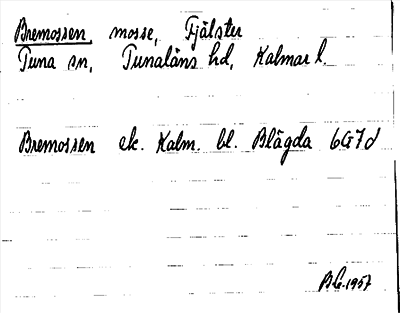 Bremossen, mosse, Fjälster
Tuna sn, Tunaläns hd, Kalmar l.
Bremossen ek. Kalm. bl. Blägda 6G7d
1957